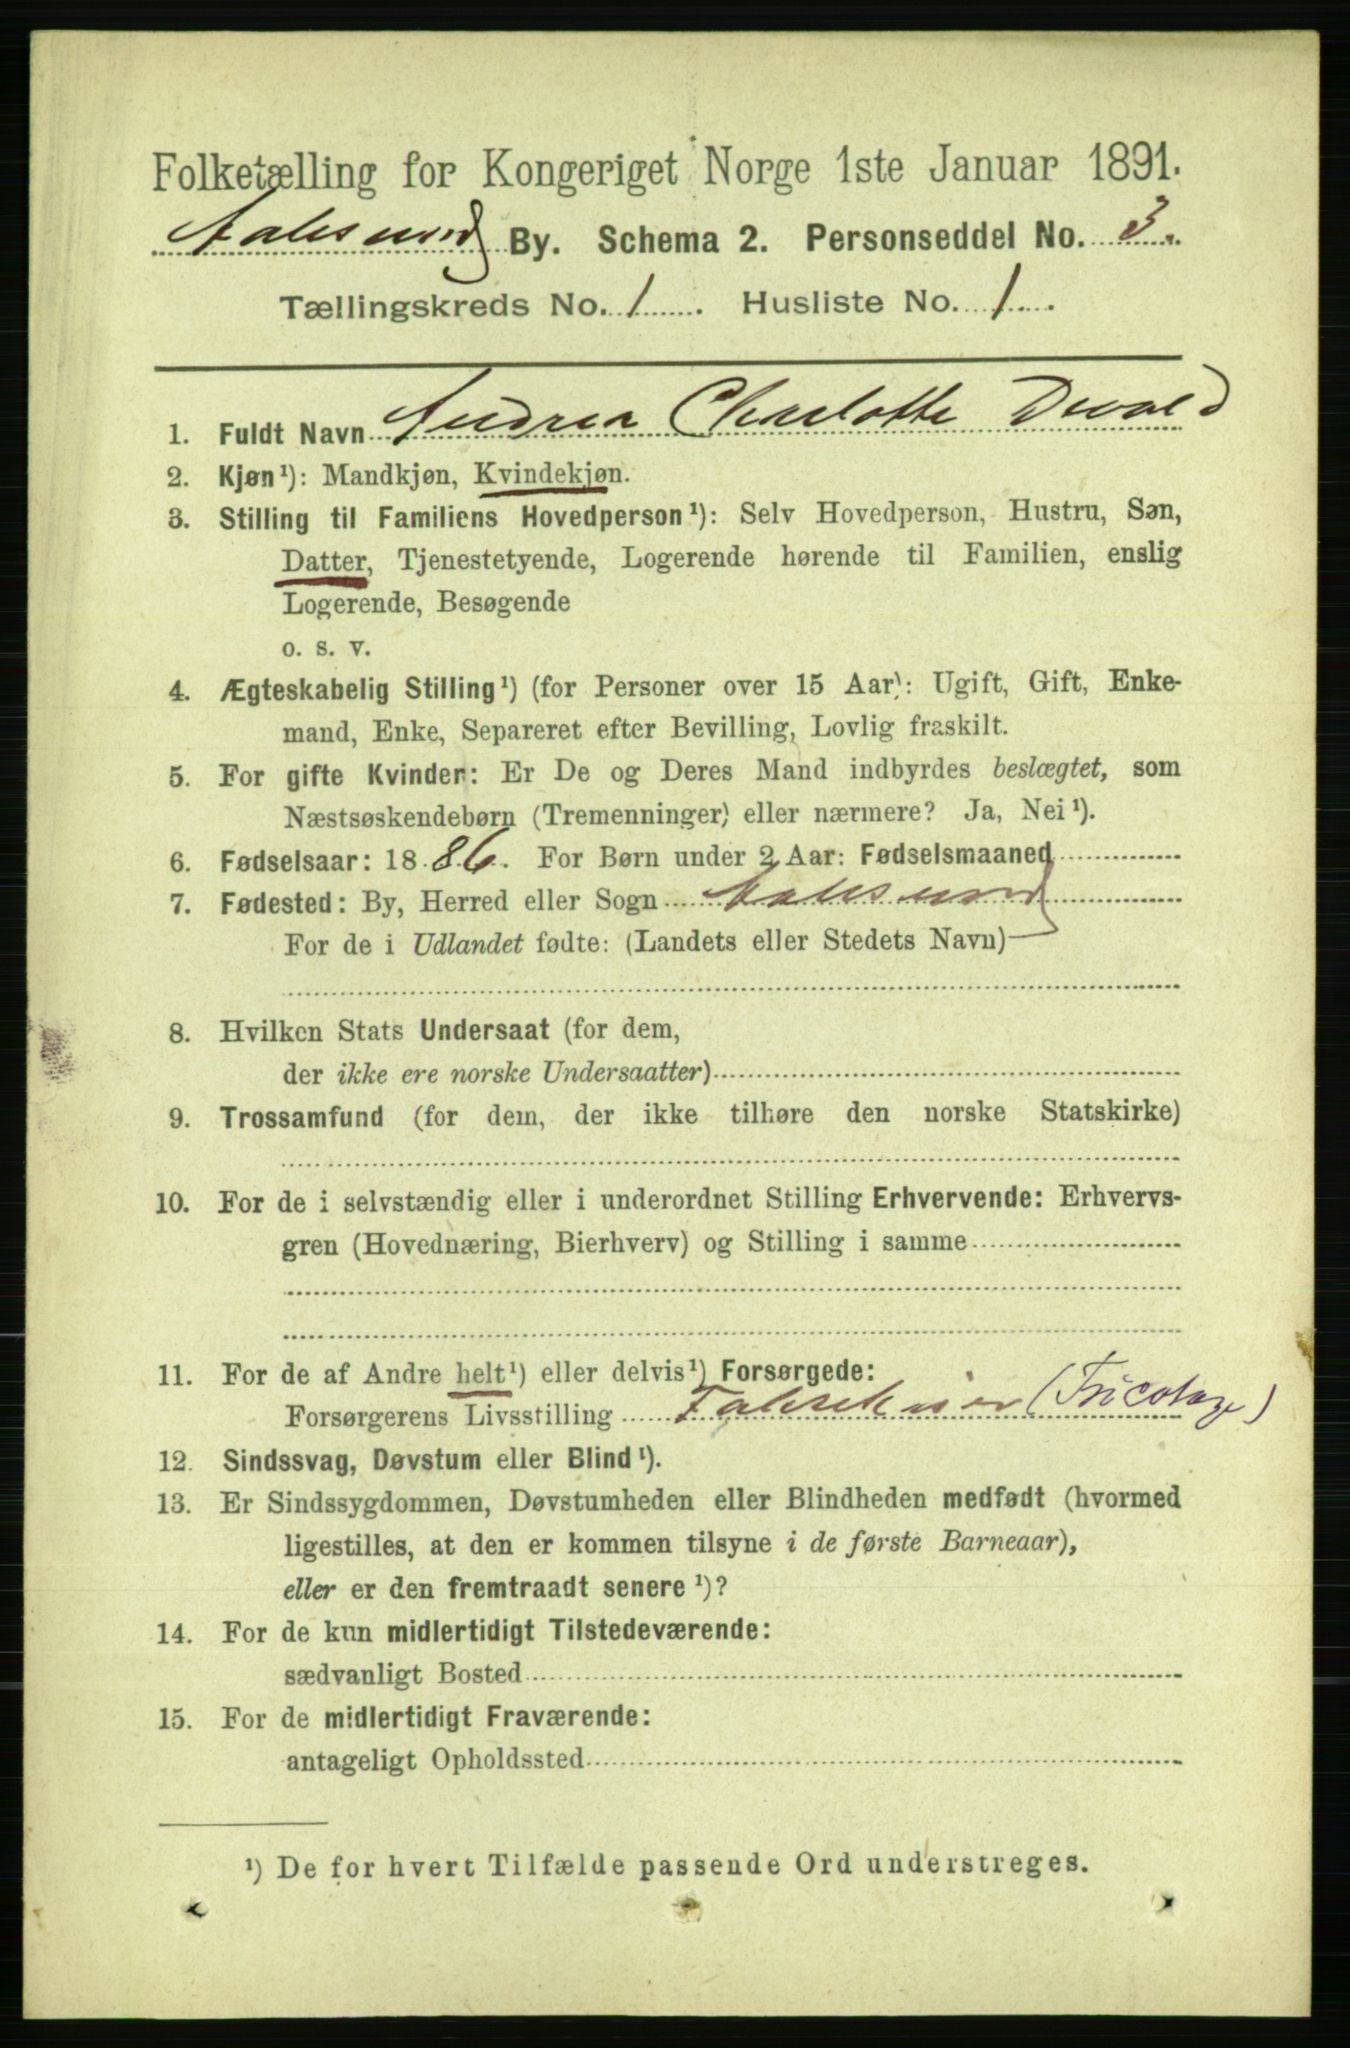 Folketælling for Kongeriget Norge 1ste Januar 1891.
Aalesund By. Schema 2. Personseddel No. 3.
Tællingskreds No. 1. Husliste No. 1.
1. Fuldt Navn Andrea Charlotte Devold
2. Kjøn¹): Mandkjøn, Kvindekjøn.
3. Stilling til Familiens Hovedperson¹): Selv Hovedperson, Hustru, Søn,
Datter, Tjenestetyende, Logerende hørende til Familien, enslig
Logerende, Besøgende
o. s. v.
4. Ægteskabelig Stilling¹) (for Personer over 15 Aar): Ugift, Gift, Enke-
mand, Enke, Separeret efter Bevilling, Lovlig fraskilt.
5. For gifte Kvinder: Er De og Deres Mand indbyrdes beslægtet, som
Næstsøskendebørn (Tremenninger) eller nærmere? Ja, Nei¹).
6. Fødselsaar: 1886. For Børn under 2 Aar: Fødselsmaaned
7. Fødested: By, Herred eller Sogn Aalesund
For de i Udlandet fødte: (Landets eller Stedets Navn)
8. Hvilken Stats Undersaat (for dem,
der ikke ere norske Undersaatter)
9. Trossamfund (for dem, der ikke tilhøre den norske Statskirke)
10. For de i selvstændig eller i underordnet Stilling Erhvervende: Erhvervs-
gren (Hovednæring, Bierhverv) og Stilling i samme
11. For de af Andre helt¹) eller delvis¹) Forsørgede:
Forsørgerens Livsstilling Fabrikeier (Tricotage)
12. Sindssvag, Døvstum eller Blind¹).
13. Er Sindssygdommen, Døvstumheden eller Blindheden medfødt (hvormed
ligestilles, at den er kommen tilsyne i de første Barneaar),
eller er den fremtraadt senere¹)?
14. For de kun midlertidigt Tilstedeværende:
sædvanligt Bosted
15. For de midlertidigt Fraværende:
antageligt Opholdssted
¹) De for hvert Tilfælde passende Ord understreges.